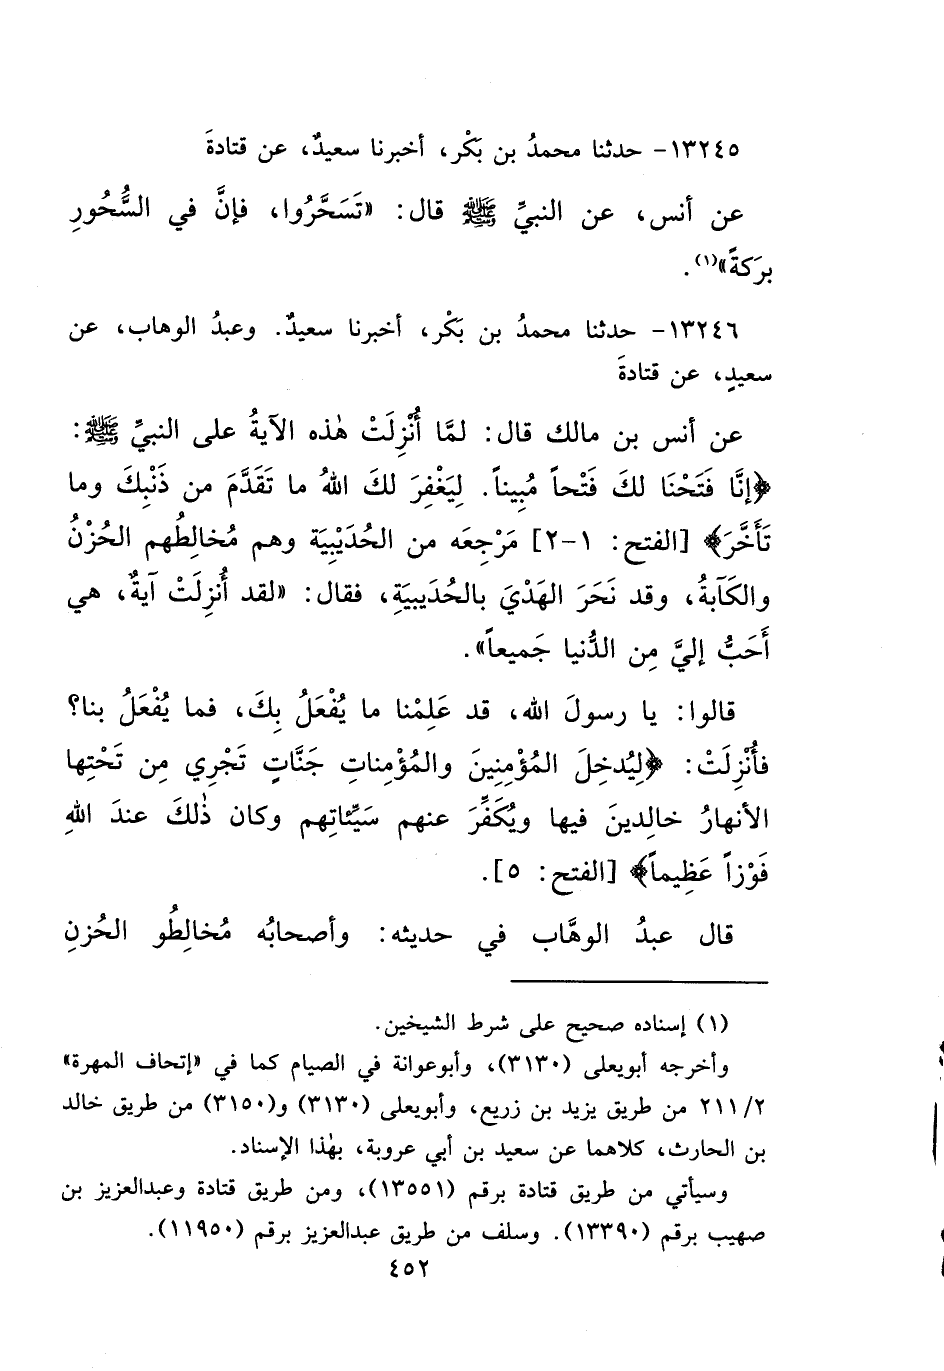 ١٣٢٤٥- حدثنا محمدُ بن بَكْر، أخبرنا سعيدٌ، عن قتادةَ
عن أنس، عن النبيِّ ﷺ قال: «تَسَحَّرُوا، فإنَّ في السُّحُورِ
برَكةً»(١).
١٣٢٤٦- حدثنا محمدُ بن بَكْر، أخبرنا سعيدٌ. وعبدُ الوهاب، عن
سعيدٍ، عن قتادةَ
عن أنس بن مالك قال: لمَّا أُنْزِلَتْ هٰذه الآيةُ على النبيِّ ﷺ:
﴿إنَّا فَتَحْنَا لكَ فَتْحاً مُبِيناً. لِيَغْفِرَ لكَ اللهُ ما تَقَدَّمَ من ذَنْبِكَ وما
تَأَخَّرَ﴾ [الفتح: ١-٢] مَرْجِعَه من الحُدَيْبِيَة وهم مُخالِطُهم الحُزْنُ
والكَآبةُ، وقد نَحَرَ الهَدْيَ بالحُدَيبيَةِ، فقال: «لقد أُنزِلَتْ آيةٌ، هي
أَحَبُّ إليَّ مِن الدُّنيا جَميعاً».
قالوا: يا رسولَ الله، قد عَلِمْنا ما يُفْعَلُ بِكَ، فما يُفْعَلُ بنا؟
فأُنْزِلَتْ: ﴿لِيُدخِلَ المُؤْمِنِينَ والمُؤْمِناتِ جَنَّاتٍ تَجْرِي مِن تَحْتِها
الأنهارُ خالِدينَ فيها ويُكَفِّرَ عنهم سَيِّئاتِهم وكان ذٰلكَ عندَ اللهِ
فَوْزاً عَظِيماً﴾ [الفتح: ٥].
قال عبدُ الوهَّاب في حديثه: وأصحابُه مُخالِطُو الحُزنِ
(١) إسناده صحيح على شرط الشيخين.
وأخرجه أبويعلى (٣١٣٠)، وأبوعوانة في الصيام كما في «إتحاف المهرة»
٢١١/٢ من طريق يزيد بن زريع، وأبويعلى (٣١٣٠) و(٣١٥٠) من طريق خالد
بن الحارث، كلاهما عن سعيد بن أبي عروبة، بهٰذا الإسناد.
وسيأتي من طريق قتادة برقم (١٣٥٥١)، ومن طريق قتادة وعبدالعزيز بن
صهيب برقم (١٣٣٩٠). وسلف من طريق عبدالعزيز برقم (١١٩٥٠).
٤٥٢